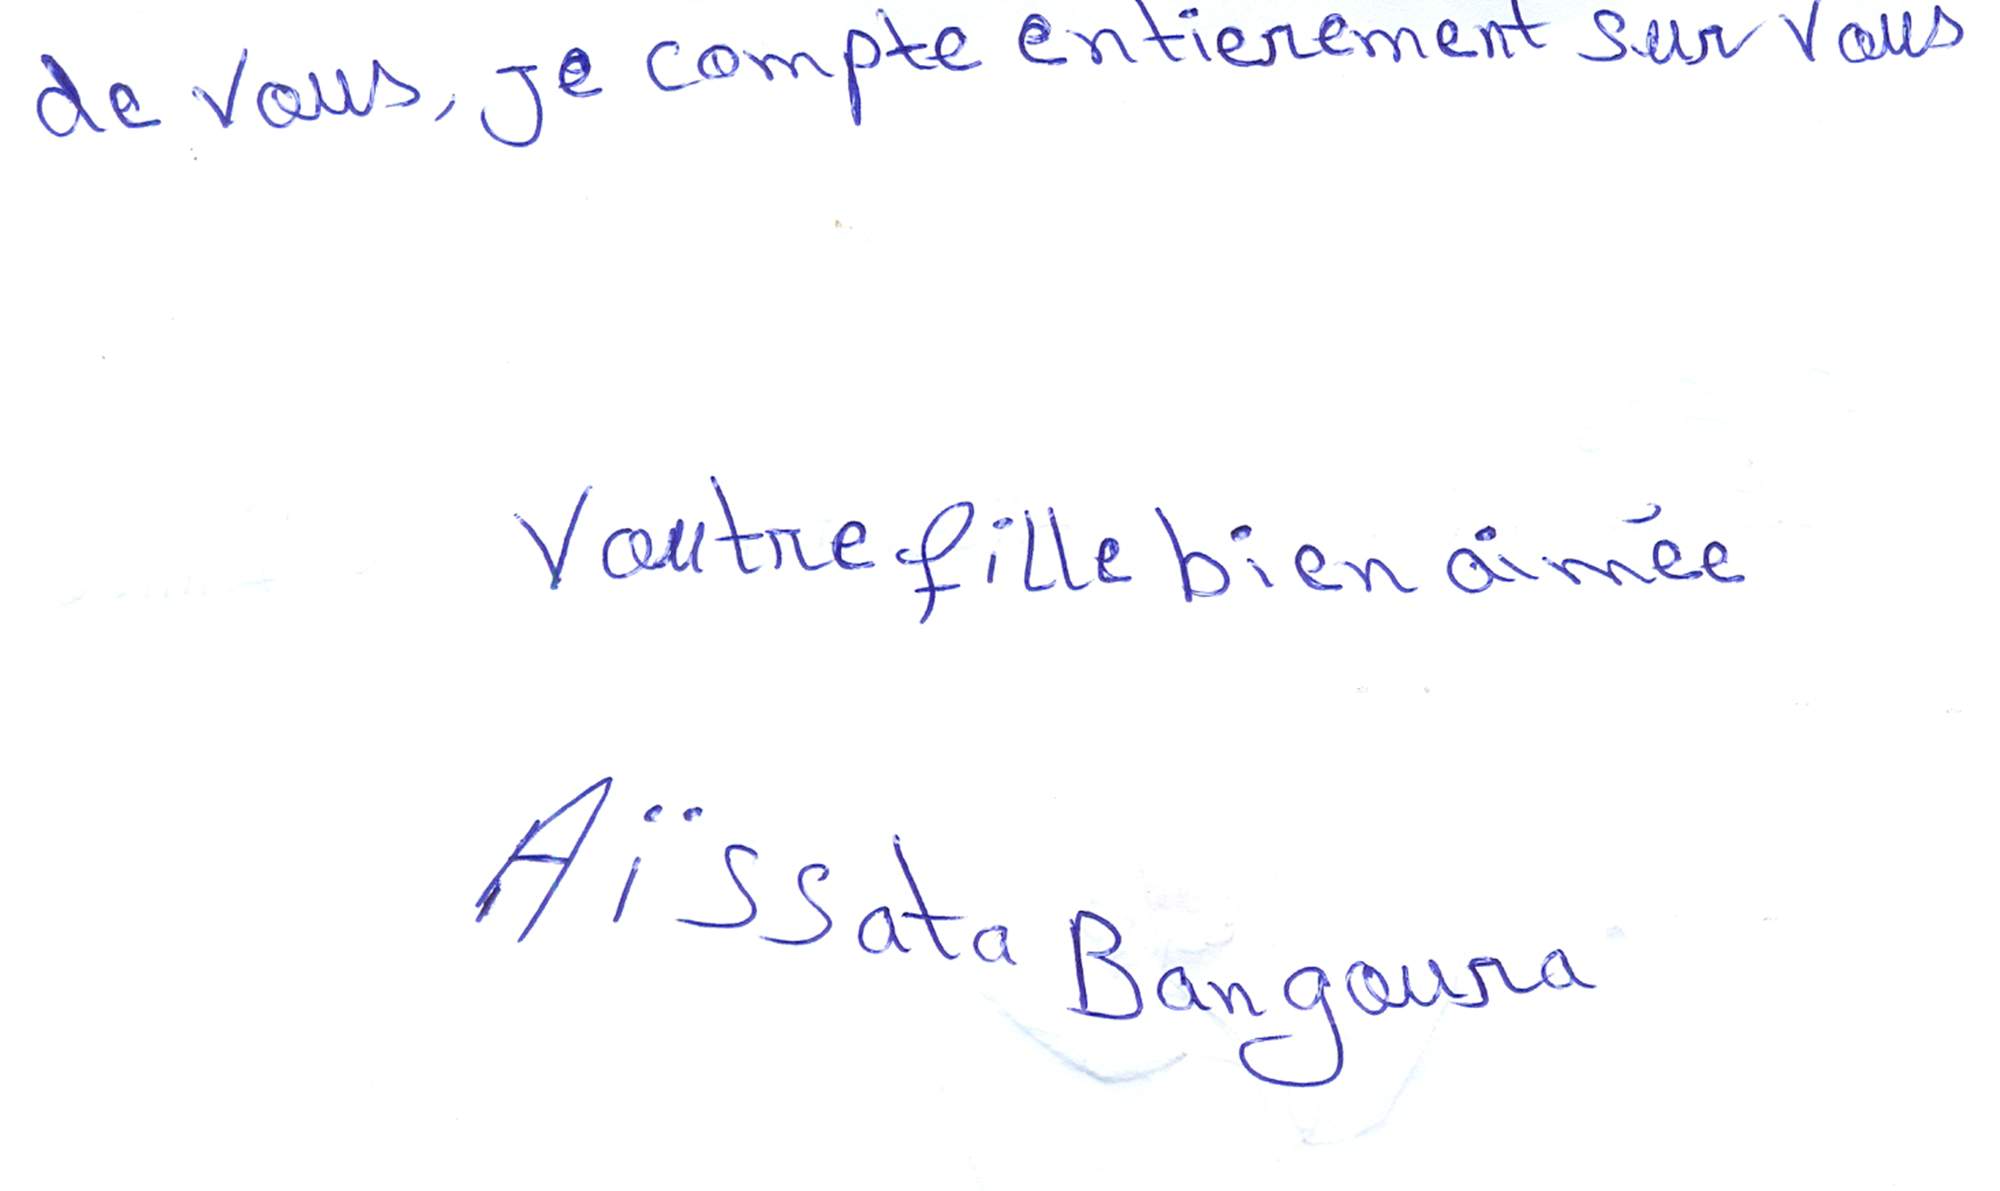 de vous, je compte entierement sur vous
Voutre fille bien aimée
Aïssata Bangoura